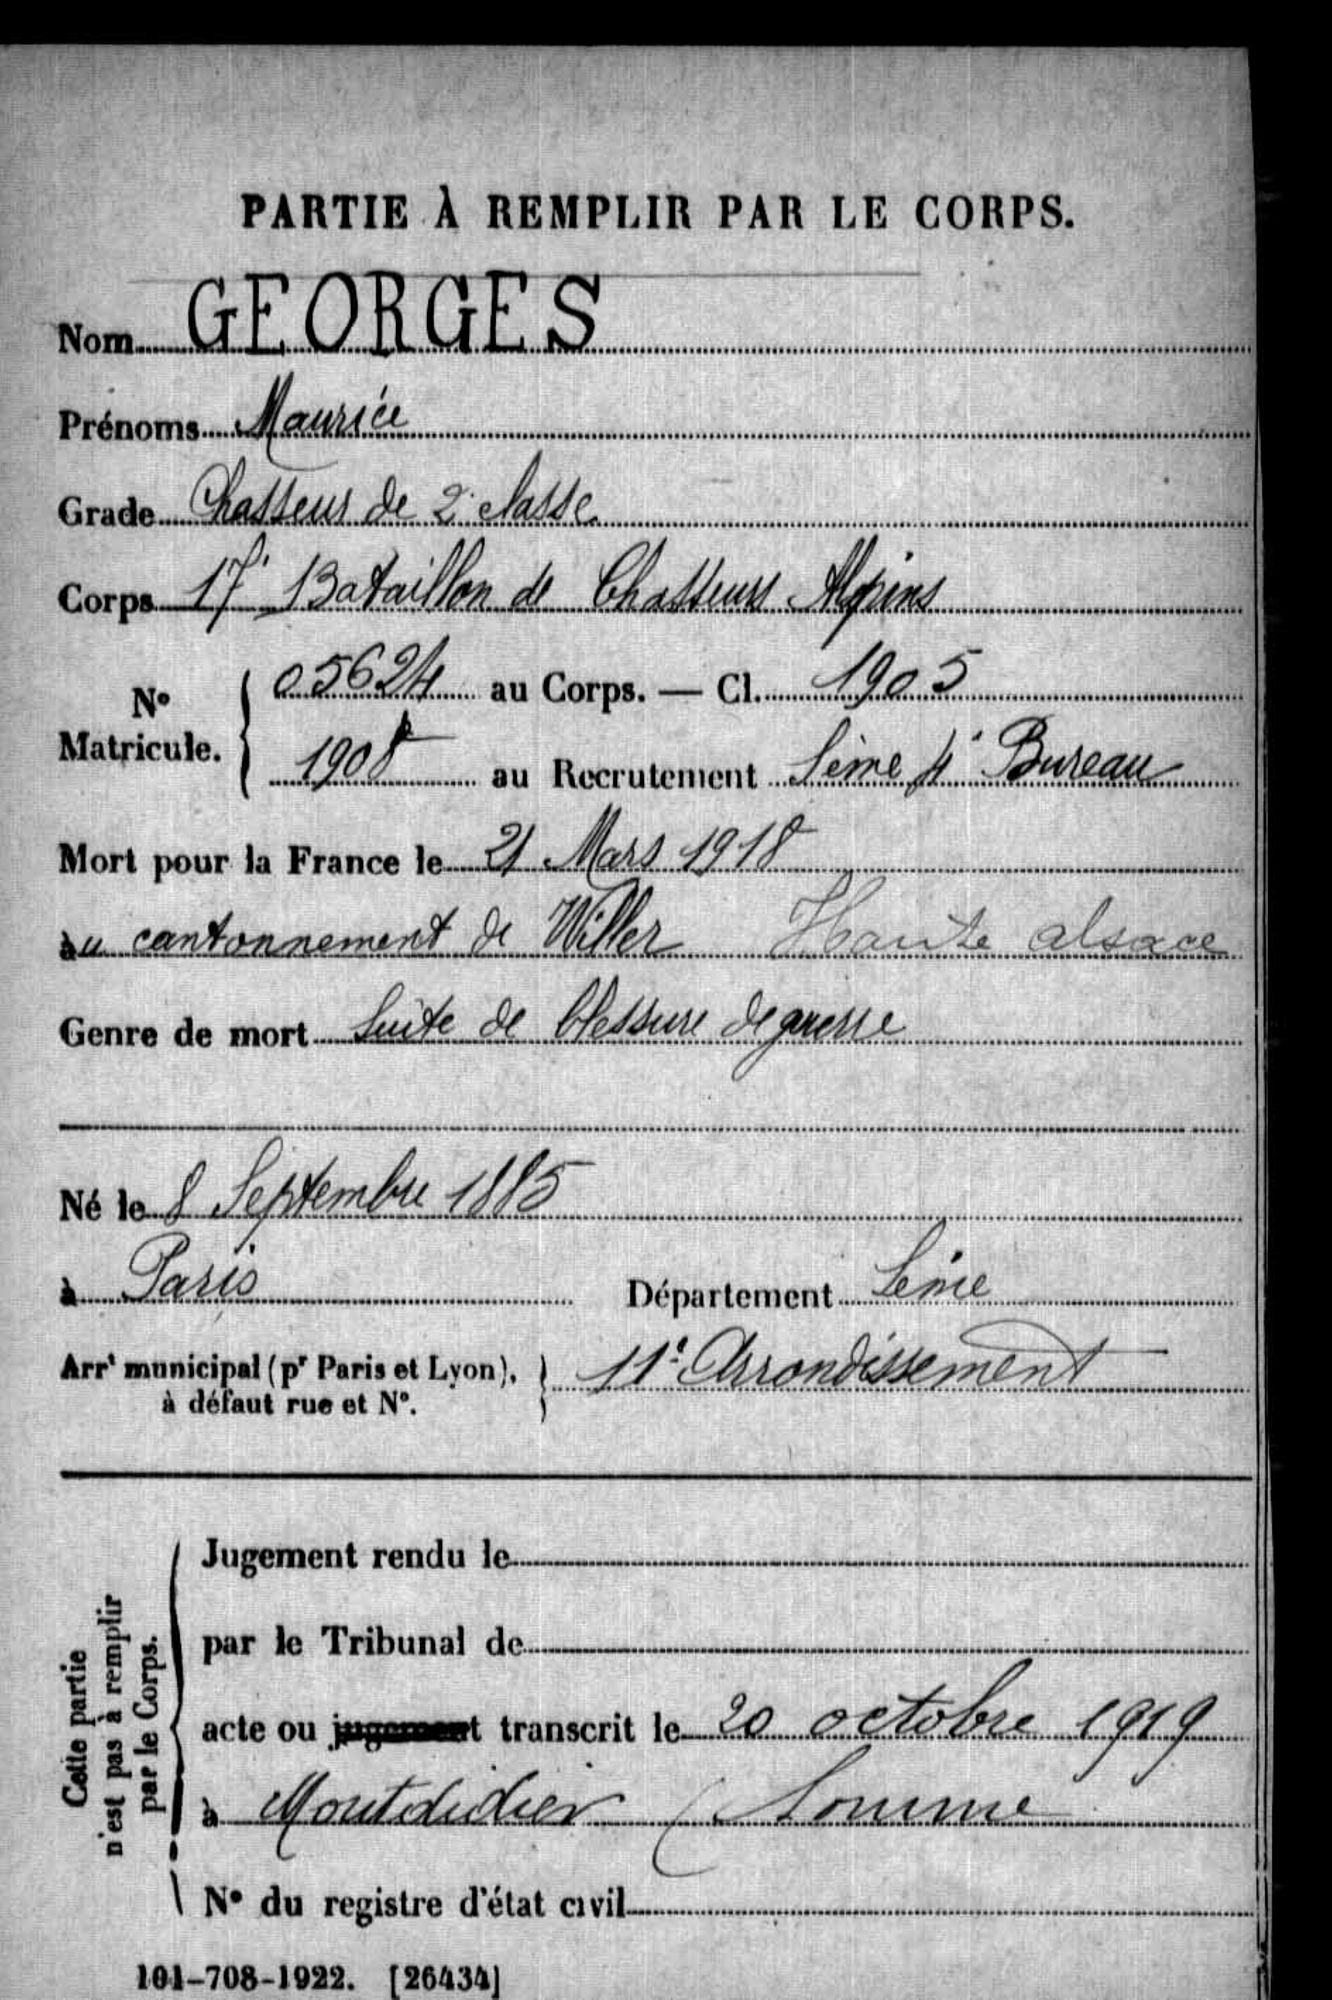 PARTIE À REMPLIR PAR LE CORPS.
Nom GEORGES
Prénoms Maurice
Grade Chasseur de 2e classe
Corps 17e Bataillon de Chasseurs Alpins
No Matricule. { 05624 au Corps. — Cl. 1905
1908 au Recrutement Seine 4e Bureau
Mort pour la France le 21 Mars 1918
au cantonnement de Willer Haute alsace
Genre de mort Suite de blessure de guerre
Né le 8 Septembre 1885
à Paris Département Seine
Arrt municipal (pr Paris et Lyon), à défaut rue et No. } 11e Arrondissement
Cette partie n'est pas à remplir par le Corps.
Jugement rendu le
par le Tribunal de
acte ou jugement transcrit le 20 octobre 1919
à Montdidier (Somme
No du registre d'état civil
101-708-1922. [26434]